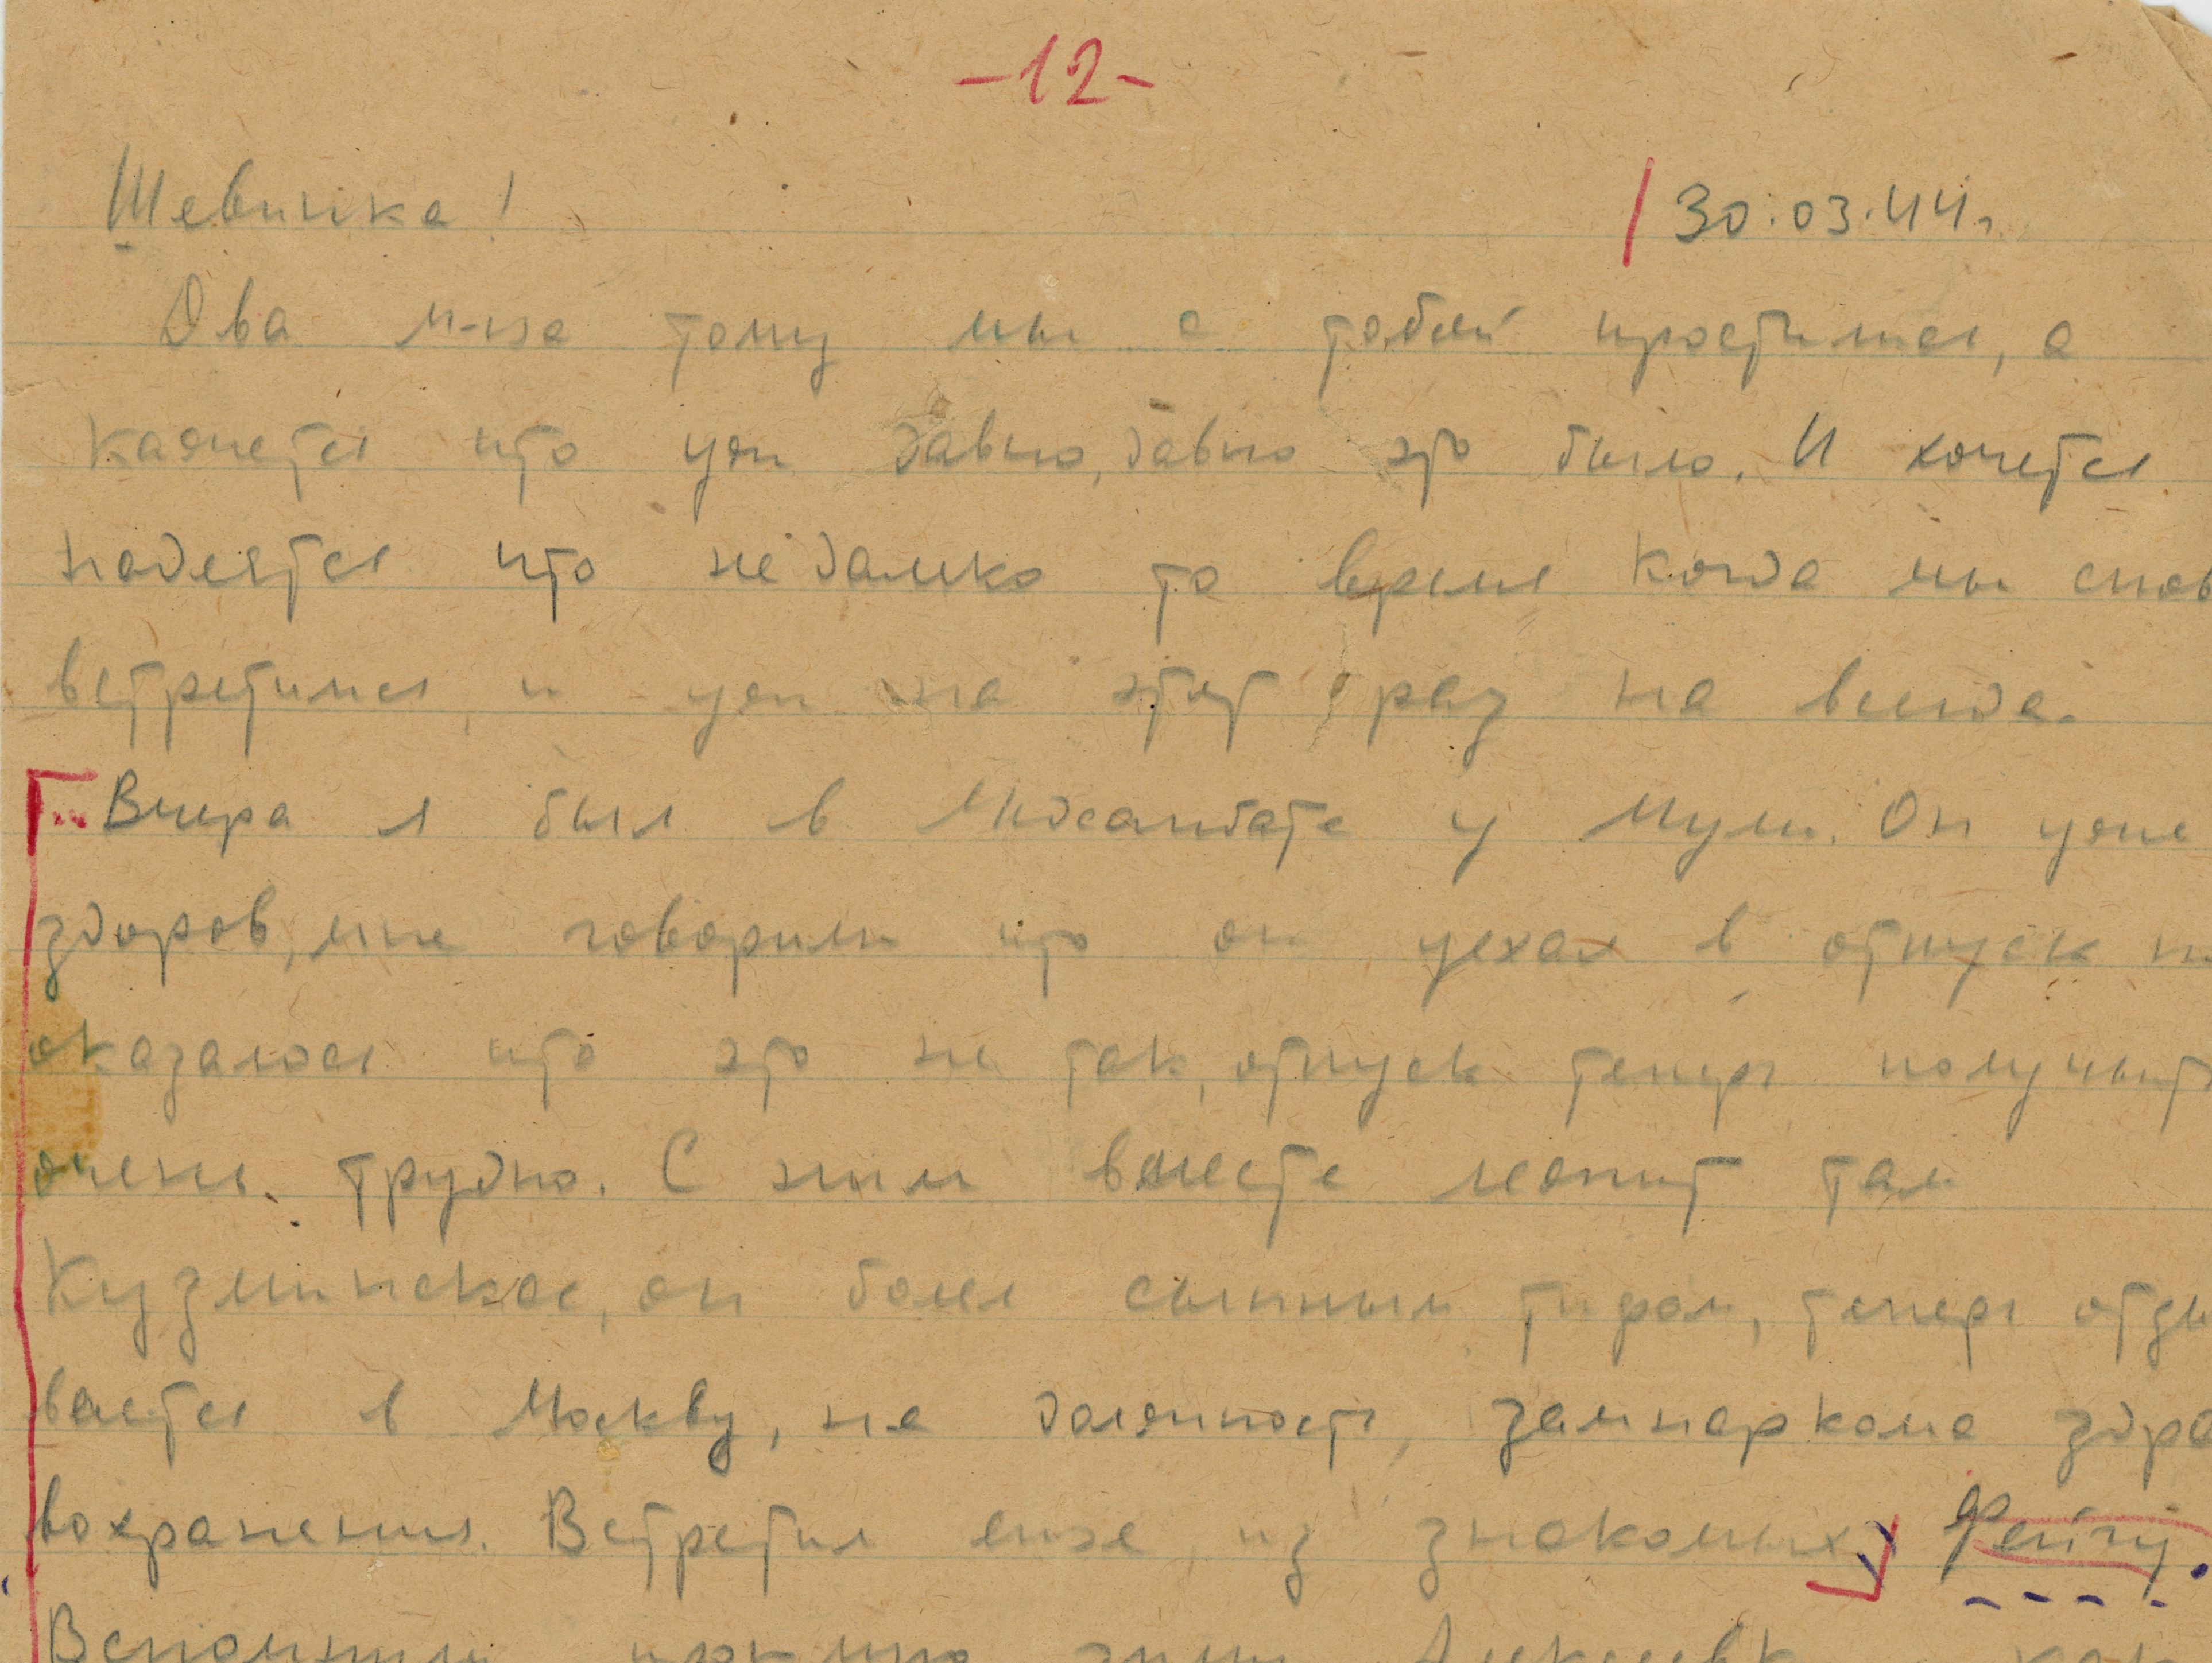 -12-
Шевичка! 30.03.44г.
Два м-ца тому мы с тобой простились, а
кажется что уж давно, давно это было. И хочется
надеятся что недалеко то время когда мы снов
встретимся, и уж на этот раз на всегда.
Вчера я был в Медсанбате у Мули. Он уже
здоров, мне говорили что он уехал в отпуск но
оказалось что это не так, отпуск теперь получить
очень трудно. С ним вместе лежит там
он болел сыпным тифом, теперь отзы
вается в Москву, на должность, замнаркома здра
вохранения. Встретил еще из знакомых Фейгу.
Вспомнили